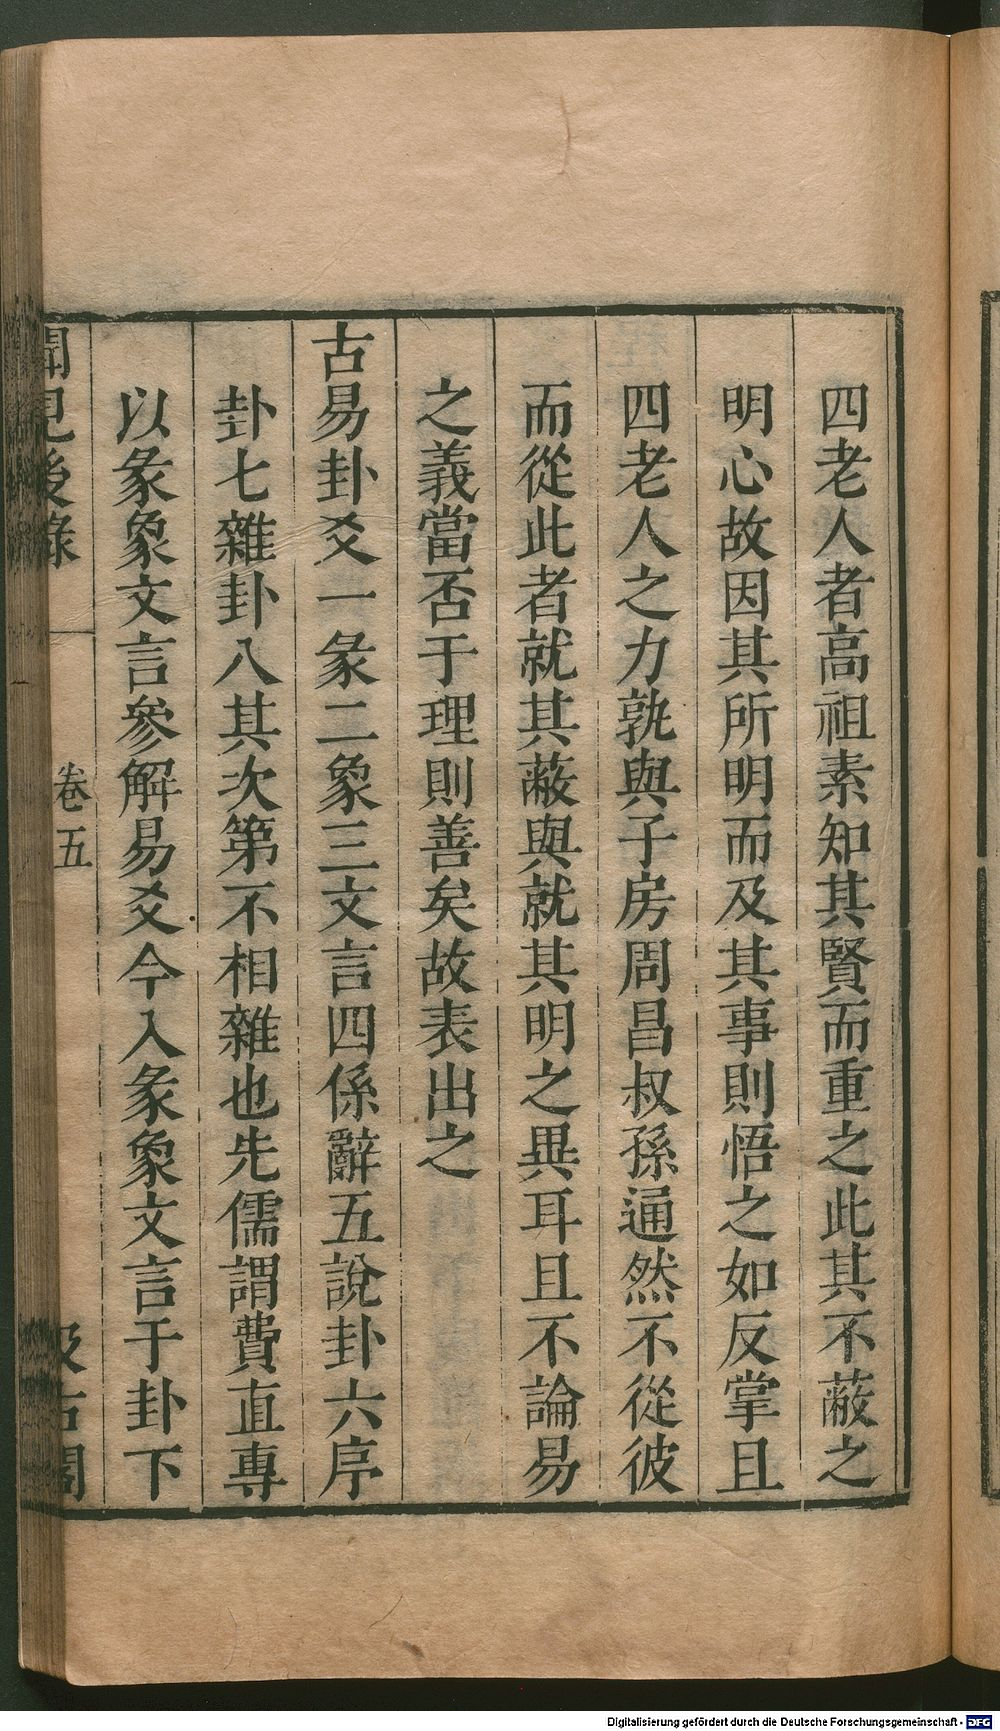 四老人者高祖素知其賢而重之此其不蔽之
明心故因其所明而及其事則悟之如反掌且
四老人之力孰與子房周昌叔孫通然不從彼
而從此者就其蔽與就其明之異耳且不論易
之義當否于理則善矣故表出之
古易卦爻一彖二象三文言四係辭五說卦六序
卦七雜卦八其次第不相雜也先儒謂費直專
以彖象文言參解易爻今入彖象文言于卦下
聞見後錄
卷五
汲古閣
Digitalisierung gefördert durch die Deutsche Forschungsgemeinschaft - DFG